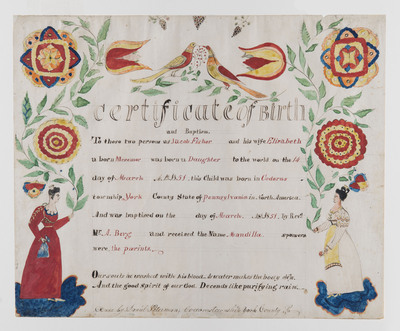 Certificate of Birth
and Baptism
To these two persons as Jacob Fisher and his wife Elizabeth
a born Messimer was born a Daughter to the world on the
day of March A.D. 1851 this Child was born in Codorus
township York County State of Pennsylvania in North America.
And was baptized on the day of March A.D. 1851 by Revd
Mr. J. Berg and received the Name Mandilla sponsors
were the parents.
Our souls be washed with his blood. As water makes the body clean
And the good spirit of our God. Decends like purifying rain.
by Daniel Peterman